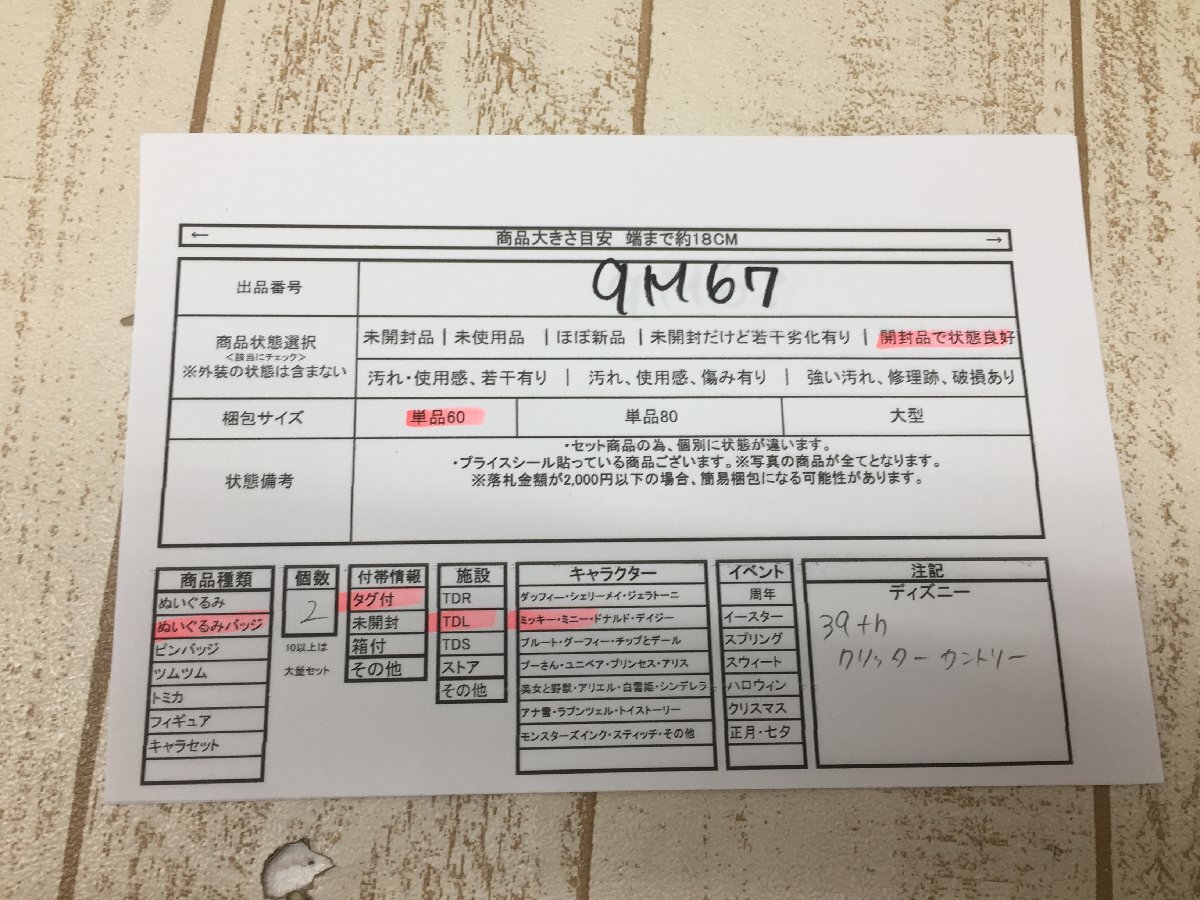 ← 商品大きさ目安 端まで約18CM →
出品番号 9M67
商品状態選択
<該当にチェック>
※外装の状態は含まない
未開封品 | 未使用品 | ほぼ新品 | 未開封だけど若干劣化有り | 開封品で状態良好
汚れ・使用感、若干有り | 汚れ、使用感、傷み有り | 強い汚れ、修理跡、破損あり
梱包サイズ 単品60 単品80 大型
状態備考
・セット商品の為、個別に状態が違います。
・プライスシール貼っている商品ございます。※写真の商品が全てとなります。
※落札金額が2,000円以下の場合、簡易梱包になる可能性があります。
商品種類
ぬいぐるみ
ぬいぐるみバッジ
ピンバッジ
ツムツム
トミカ
フィギュア
キャラセット
個数
2
10以上は
大量セット
付帯情報
タグ付
未開封
箱付
その他
施設
TDR
TDL
TDS
ストア
その他
キャラクター
ダッフィー・シェリーメイ・ジェラトーニ
ミッキー・ミニー・ドナルド・デイジー
プルート・グーフィー・チップとデール
プーさん・ユニベア・プリンセス・アリス
美女と野獣・アリエル・白雪姫・シンデレラ
アナ雪・ラプンツェル・トイストーリー
モンスターズインク・スティッチ・その他
イベント
周年
イースター
スプリング
スウィート
ハロウィン
クリスマス
正月・七夕
注記
ディズニー
39th
クリッターカントリー